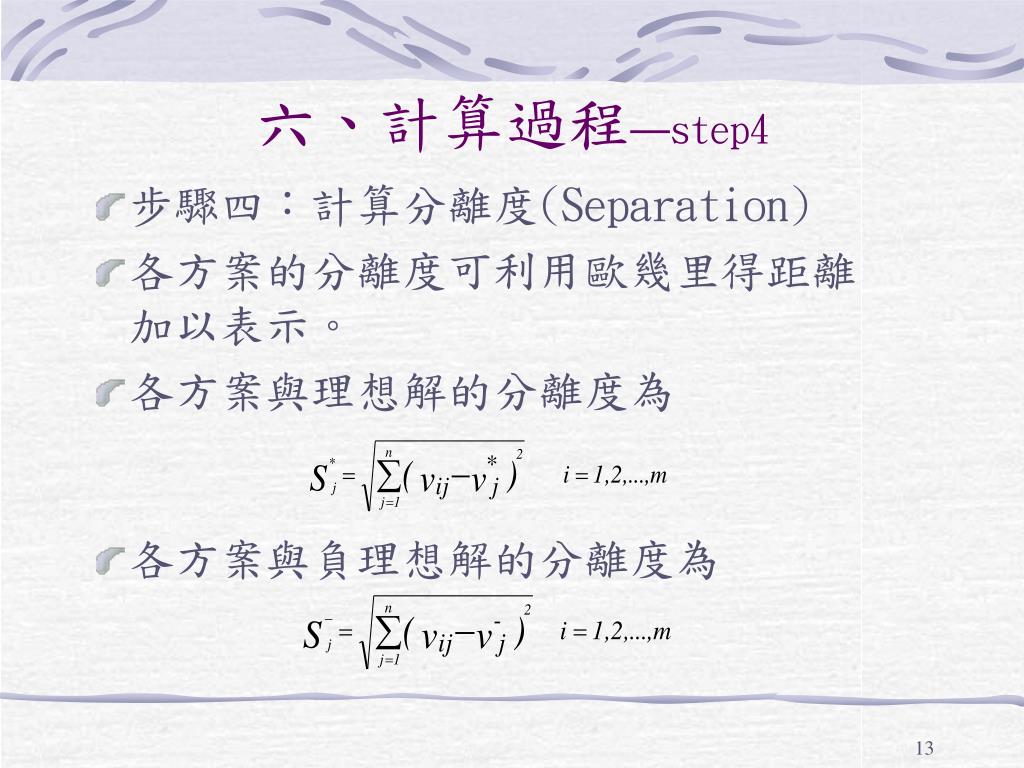 六、計算過程—step4
步驟四：計算分離度(Separation)
各方案的分離度可利用歐幾里得距離
加以表示。
各方案與理想解的分離度為
S*j = √∑(j=1, n) ( vij − v*j )² i = 1,2,...,m
各方案與負理想解的分離度為
S−j = √∑(j=1, n) ( vij − v-j )² i = 1,2,...,m
13